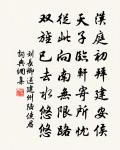 漢庭初拜建安侯
天子臨軒寄所憂
從此向南無限路
雙旌已去水悠悠
劉長卿送建州陸使君
詞典網集